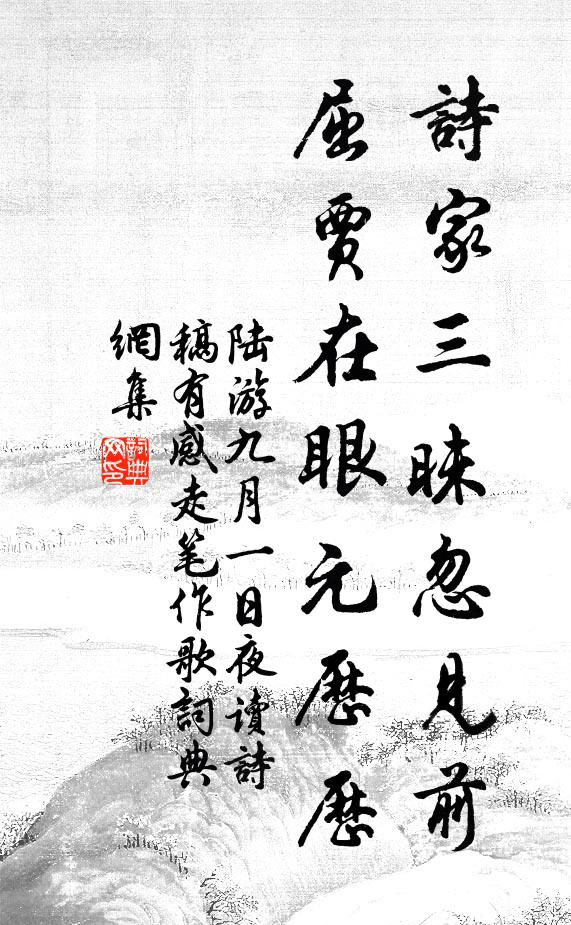 詩家三昧忽見前
屈賈在眼元歷歷
陆游九月一日夜讀詩
稿有感走笔作歌詞典
網集
詞典
网印